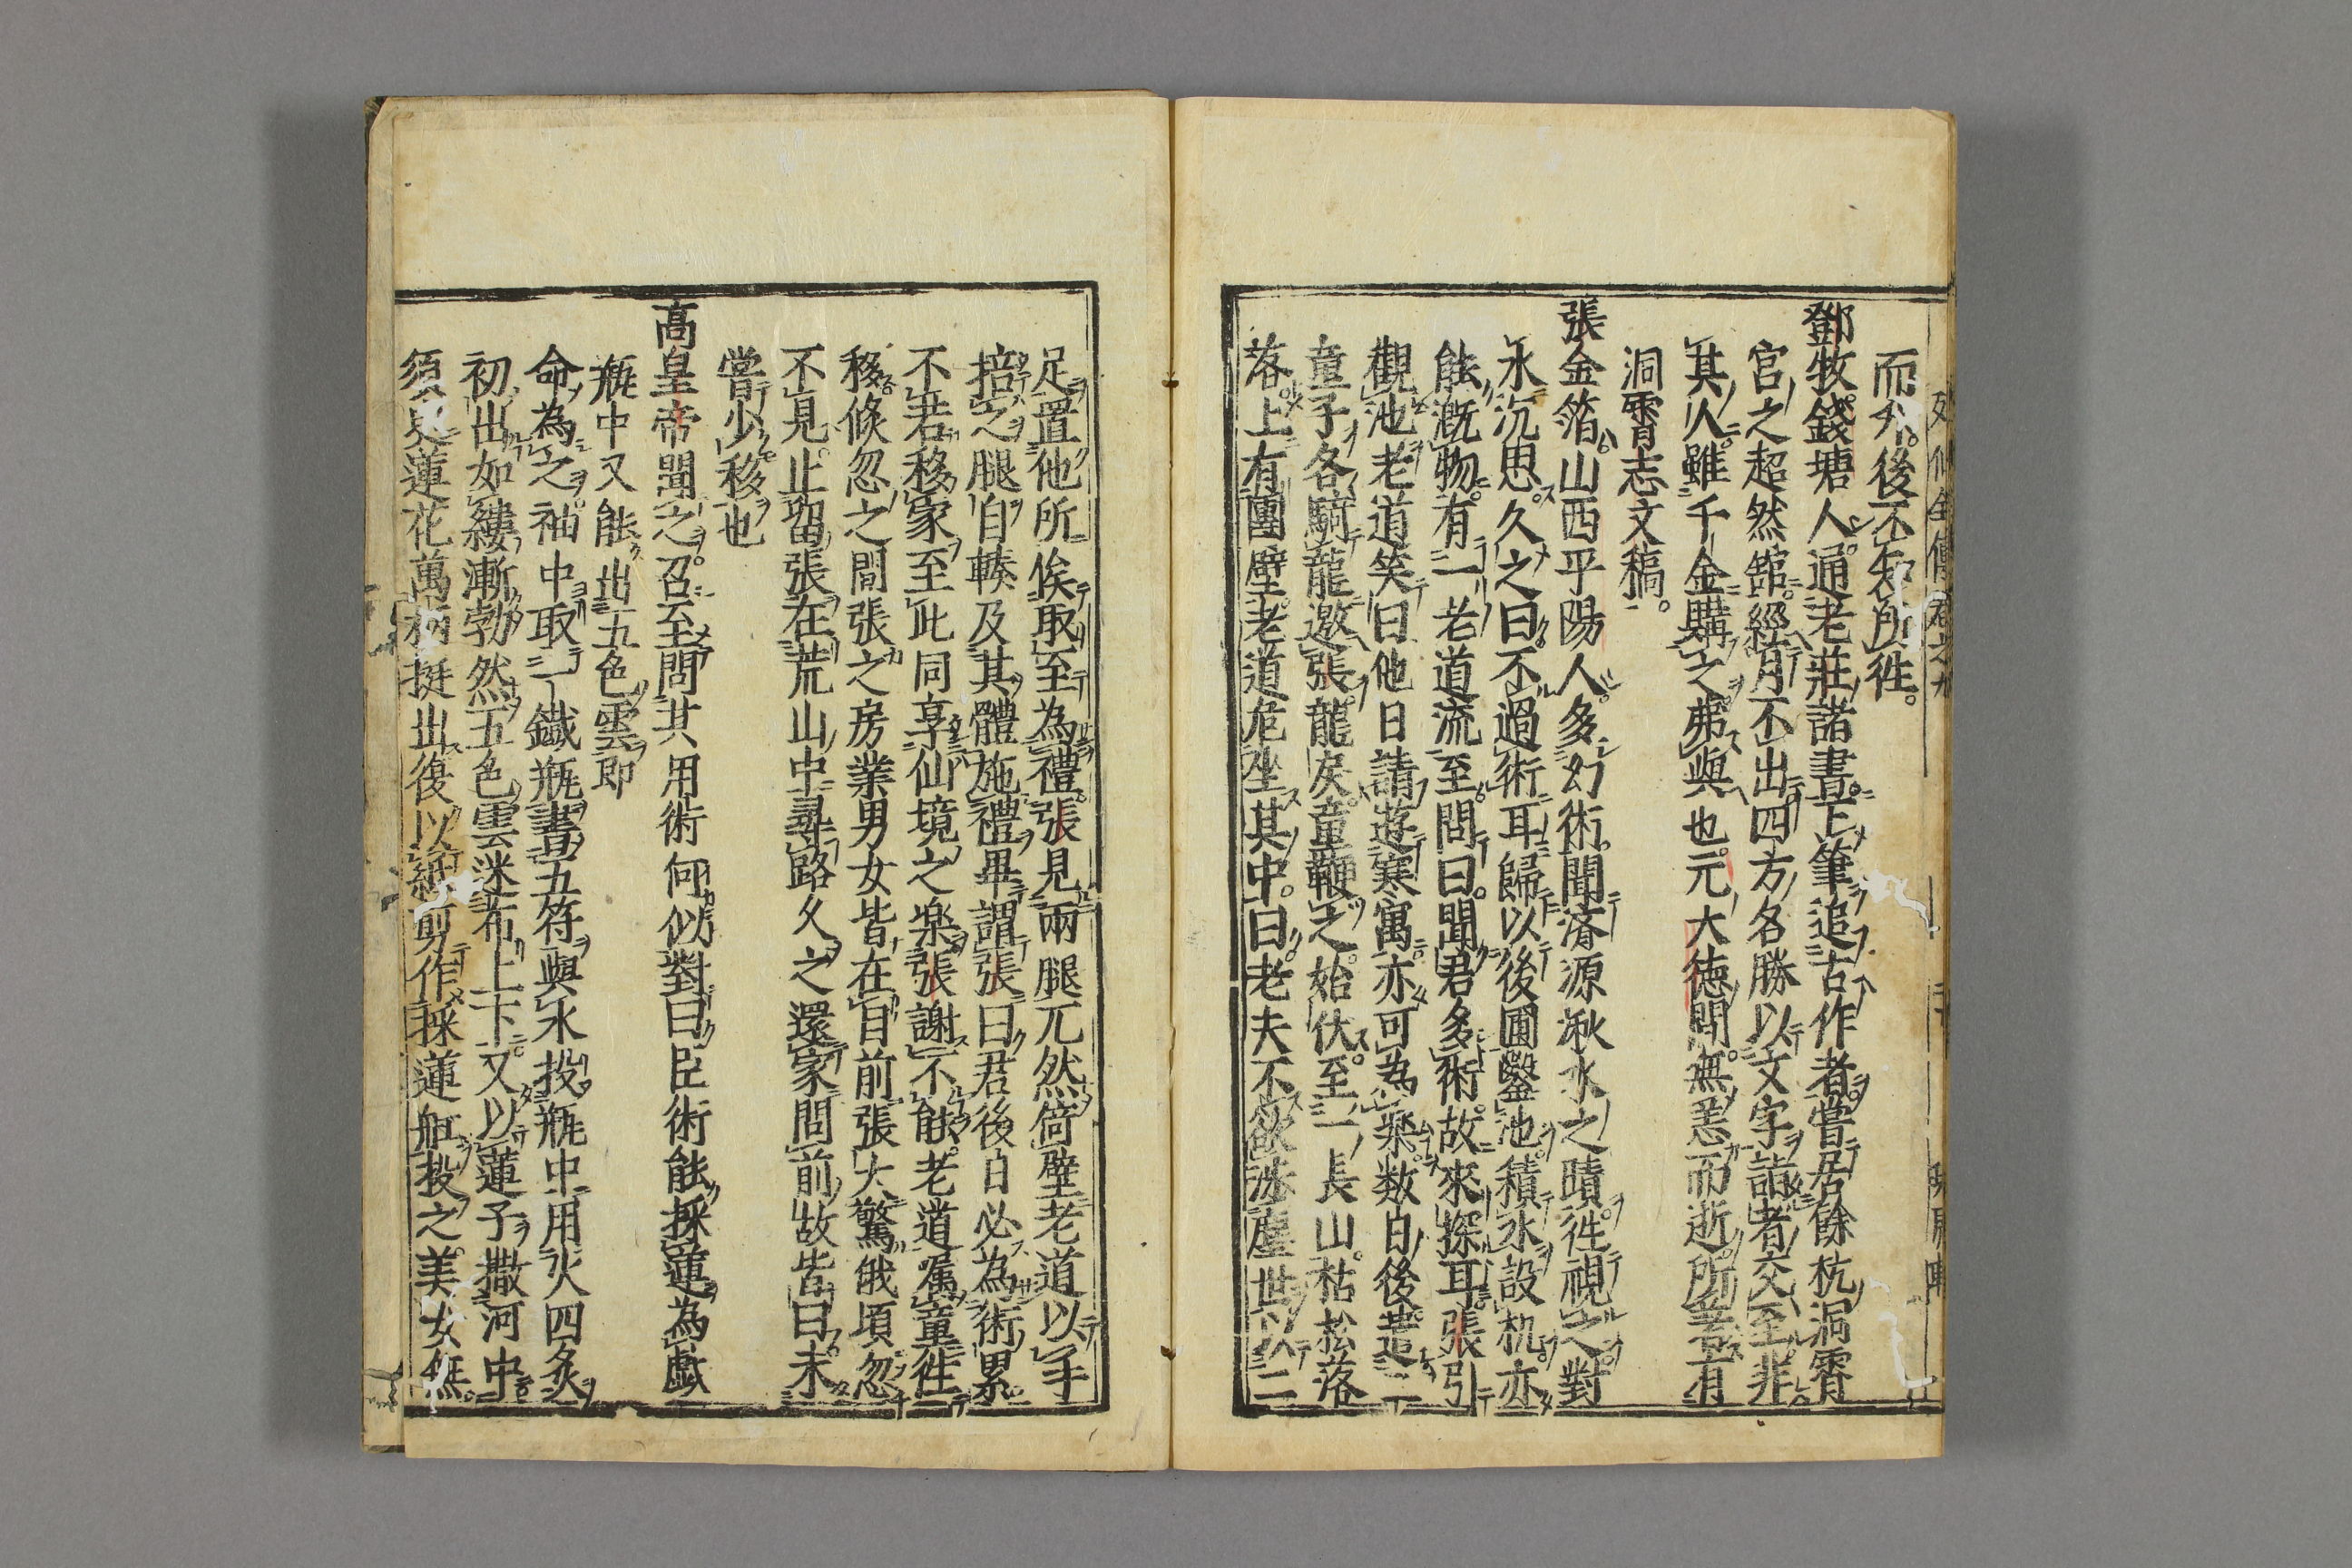 而外後不知所往。
鄧牧錢塘人。通老莊諸書。下筆追古作者。嘗居餘杭洞霄
官之超然舘。經月不出。四方名勝以文字請者交至。非
其人。雖千金購之。弗與也。元大德間。無恙而逝。所著有
洞霄志文稿。
張金箔。山西平陽人。多幻術。聞済源湫水之蹟。徃視之。對
水沉思。久之曰。不過術耳。歸以後圃鑿池。積水設机。亦
能溉物。有一老道流至。問曰。聞君多術。故來探耳。張引
觀池。老道笑曰。他日請遊寒寓。亦可為樂。数日後。遣二
童子各騎龍邀張。龍戾。童鞭之。始伏。至一長山。枯松落
落。上有團壁。老道危坐其中。曰。老夫不欲涉塵世。以二
足置他所。俟取至為禮。張見兩腿兀然倚壁。老道以手
掐之。腿自輳及其體。施禮畢。謂張曰。君後日必為術累。
不君移家至此。同享仙境之楽。張謝不能。老道嘱童徃
移。倏忽之間。張之房業男女皆在目前。張大驚。俄頃忽
不見。止留張在荒山中。尋路久之還家。問前故。皆曰。未
嘗少移也
高皇帝聞之。召至。問其用術何似。對曰。臣術能採蓮為戯
瓶中又能出五色雲即
命為之。袖中取一鐵瓶。書五符與水投瓶中。用火四炙
初出如縷。漸勃然五色雲迷布上下。又以蓮子撒河中。
須臾蓮花萬柄挺出。復以紙剪作採蓮舡。投之。美女無。